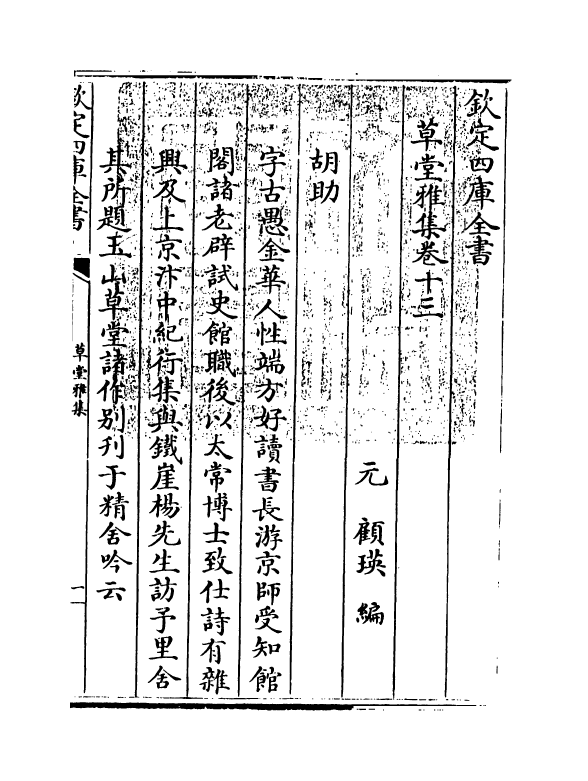 欽定四庫全書
草堂雅集卷十三
元 顧瑛 編
胡助
字古愚金華人性端方好讀書長游京師受知館
閣諸老辟試史館職後以太常博士致仕詩有雜
興及上京汴中紀行集與鐵崖楊先生訪予里舍
其所題玉山草堂諸作别刊于精舍吟云
欽定四庫全書
草堂雅集
一